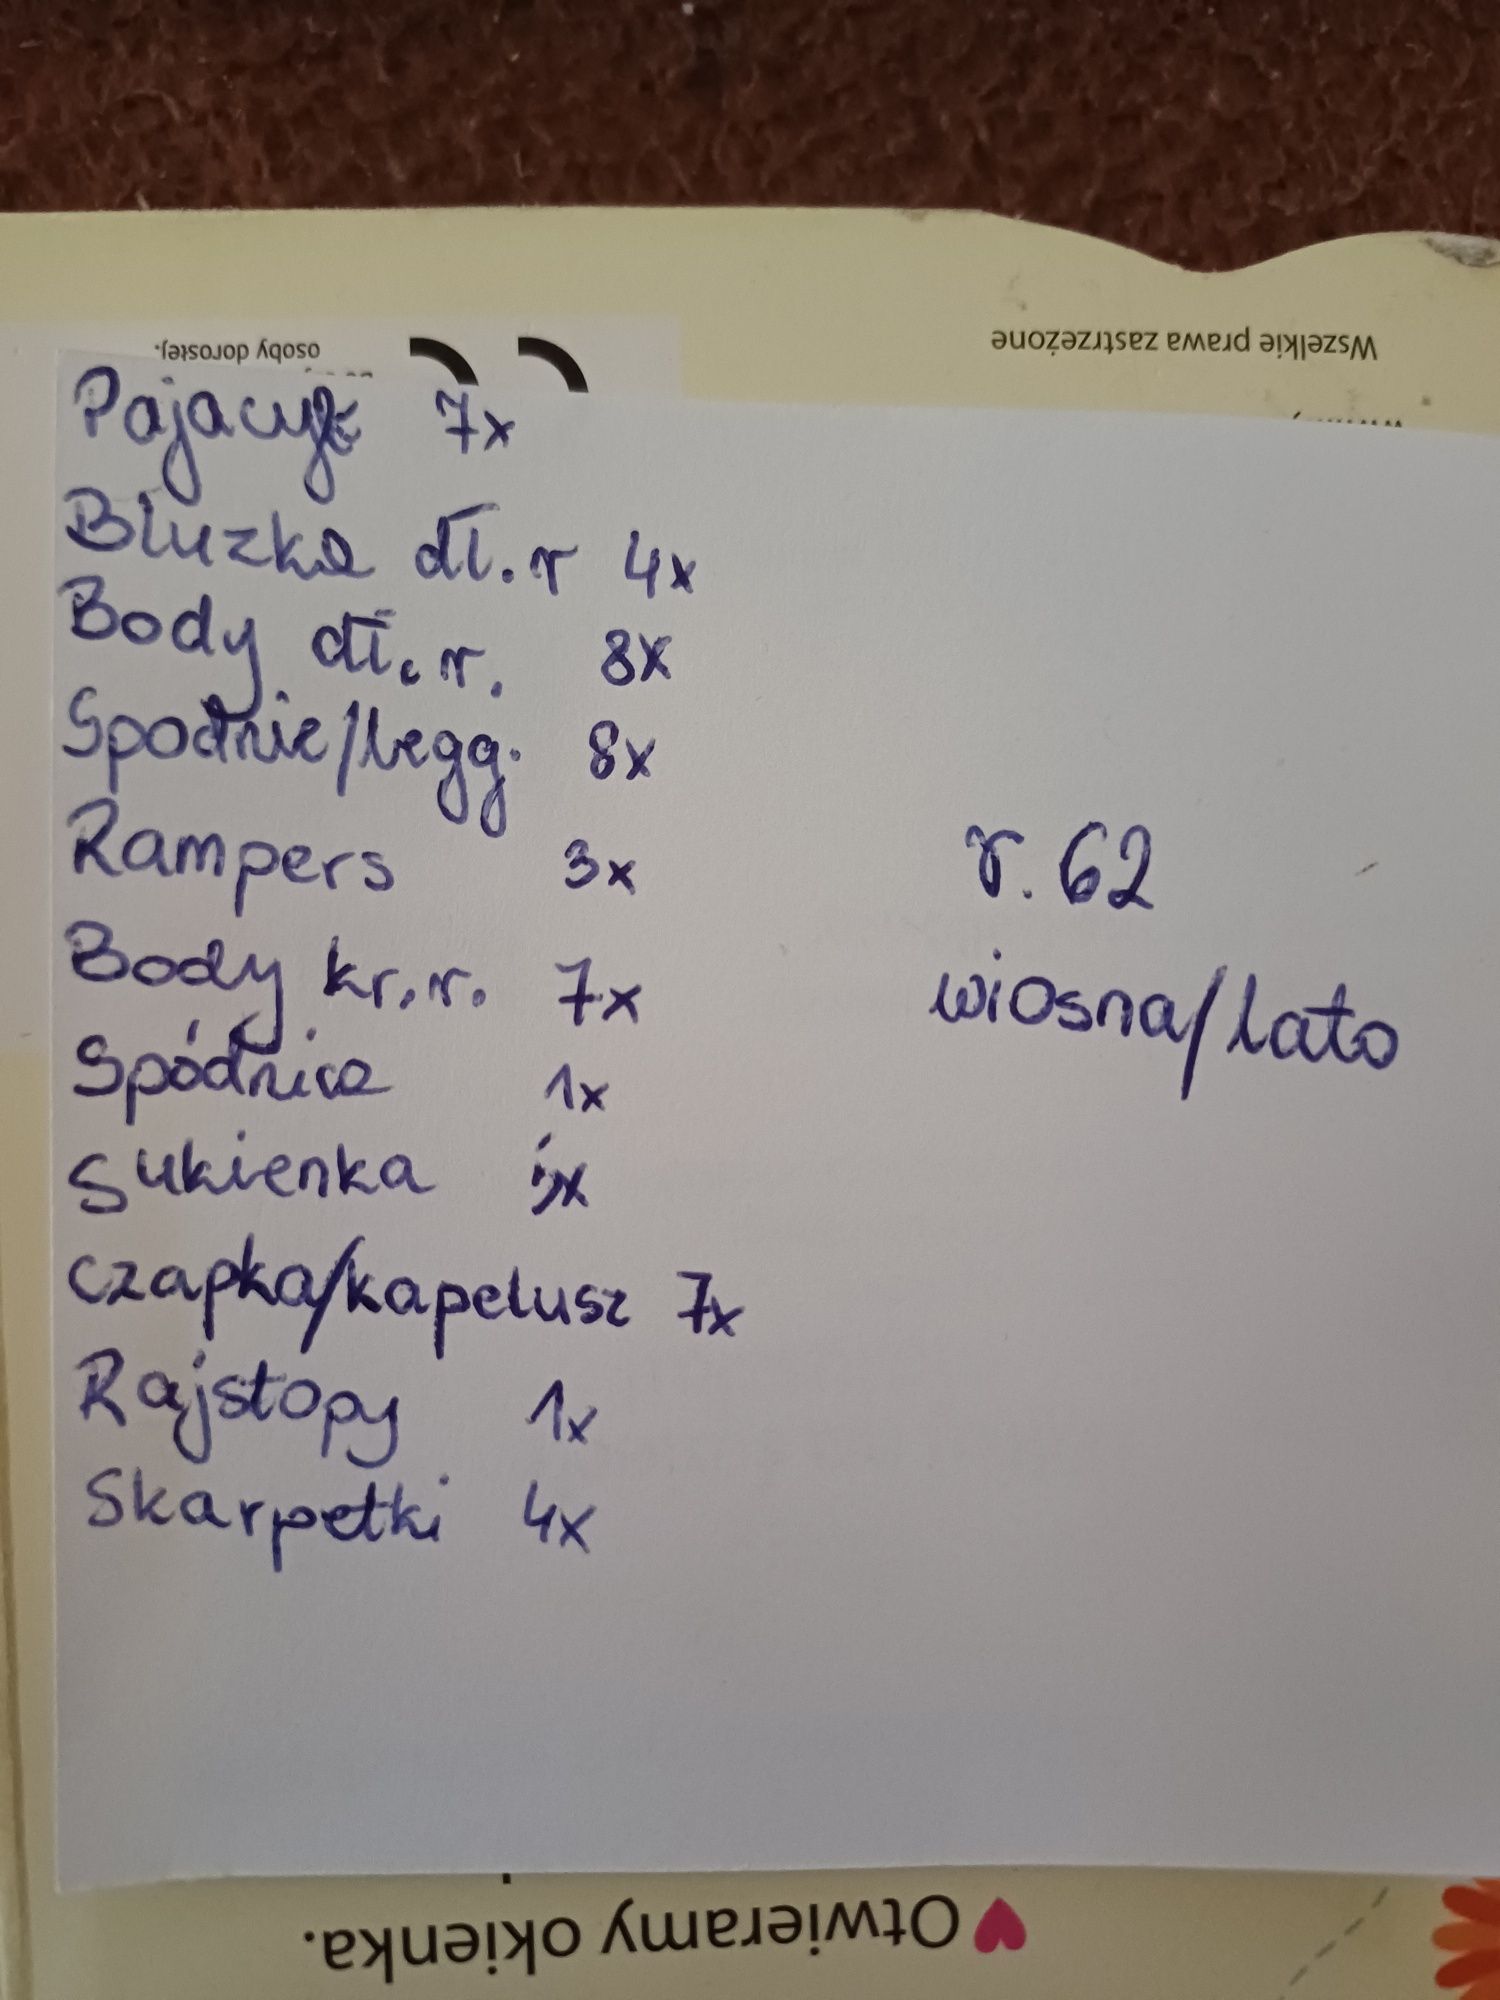 osoby dorosłej.
Wszelkie prawa zastrzeżone
Pajacyk 7x
Bluzka dł.r 4x
Body dł.r. 8x
Spodnie/legg. 8x
Rampers 3x
Body kr.r. 7x
Spódnica 1x
Sukienka
czapka/kapelusz 7x
Rajstopy 1x
Skarpetki 4x
r. 62
wiosna/lato
Otwieramy okienka.